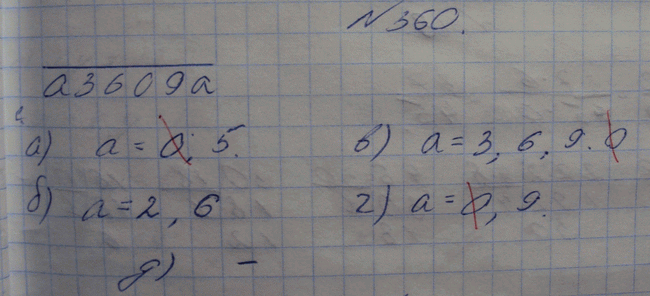 №360.
a3609a
а) a = 0, 5.
в) a = 3, 6, 9. 0
б) a = 2, 6
г) a = 0, 9.
д) –